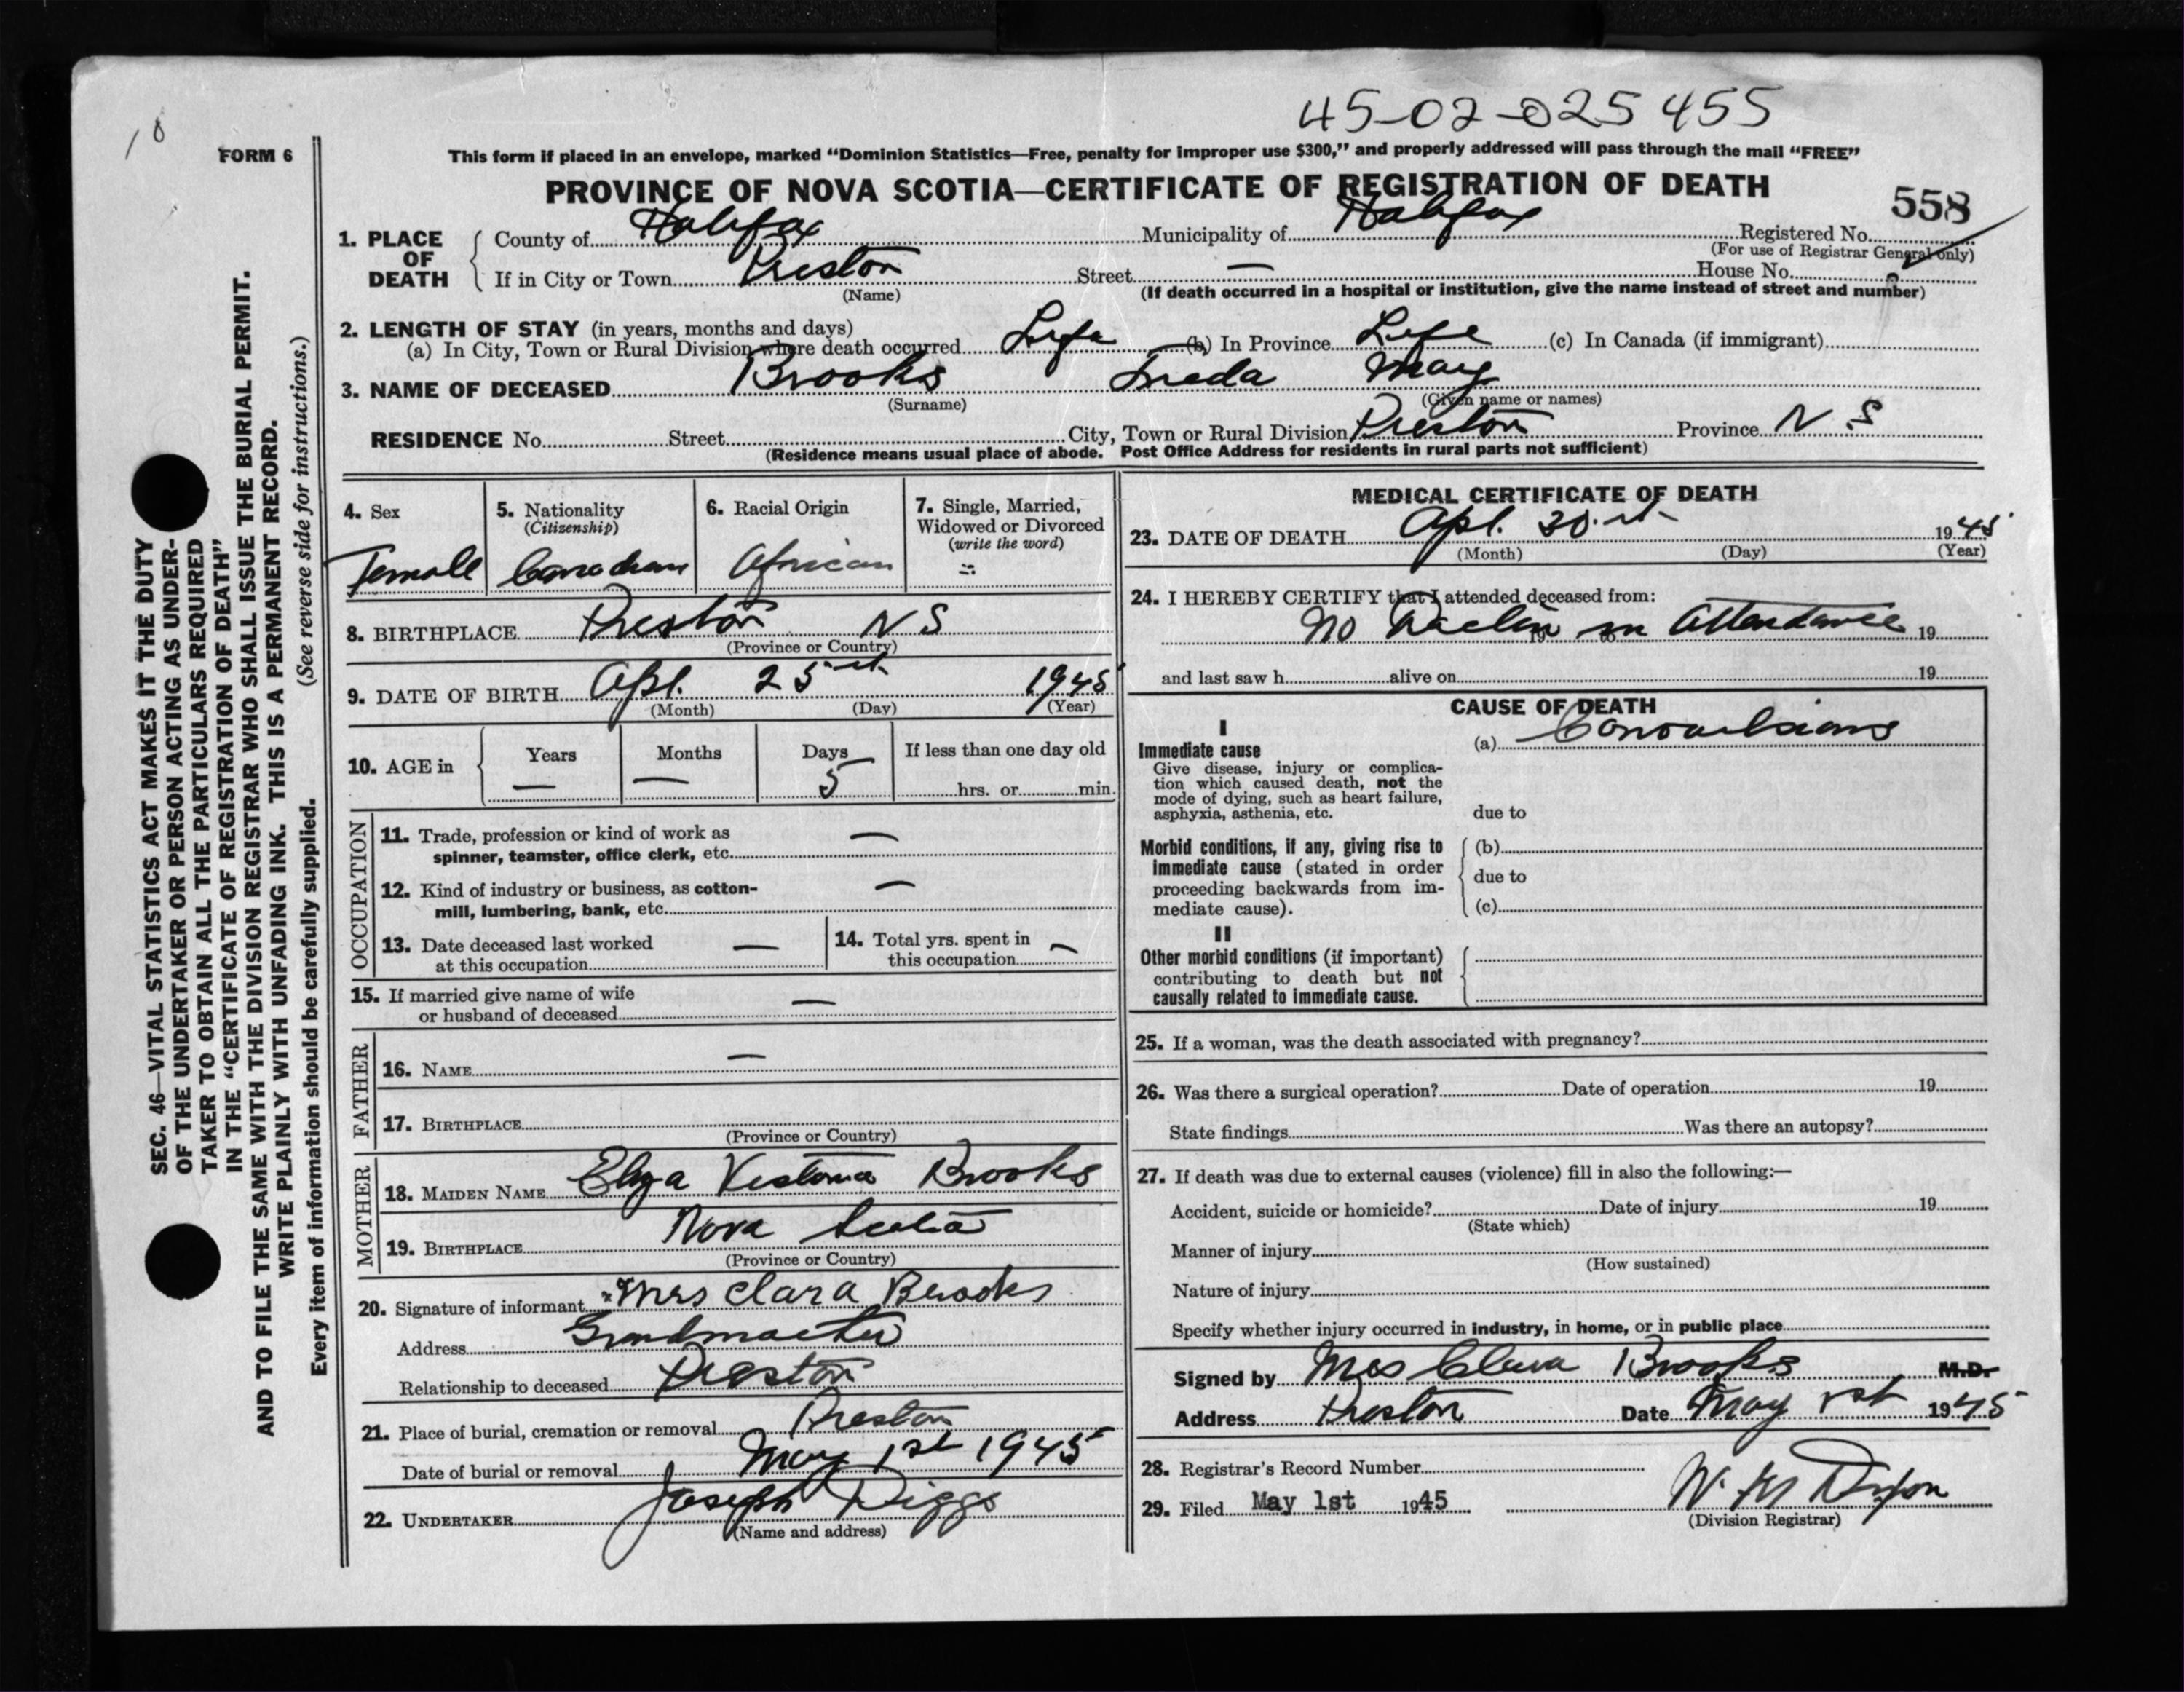 45-02-025455
10
FORM 6
This form if placed in an envelope, marked “Dominion Statistics—Free, penalty for improper use $300,” and properly addressed will pass through the mail “FREE”
PROVINCE OF NOVA SCOTIA—CERTIFICATE OF REGISTRATION OF DEATH
558
1. PLACE OF DEATH
County of Halifax Municipality of Halifax Registered No.
(For use of Registrar General only)
If in City or Town Preston Street — House No.
(Name) (If death occurred in a hospital or institution, give the name instead of street and number)
2. LENGTH OF STAY (in years, months and days)
(a) In City, Town or Rural Division where death occurred Life (b) In Province Life (c) In Canada (if immigrant)
3. NAME OF DECEASED Brooks Freda May
(Surname) (Given name or names)
RESIDENCE No. Street City, Town or Rural Division Preston Province N.S
(Residence means usual place of abode. Post Office Address for residents in rural parts not sufficient)
4. Sex
Female
5. Nationality
(Citizenship)
Canadian
6. Racial Origin
African
7. Single, Married,
Widowed or Divorced
(write the word)
8. BIRTHPLACE Preston N S
(Province or Country)
9. DATE OF BIRTH Apl. 25th 1945
(Month) (Day) (Year)
10. AGE in
Years Months Days If less than one day old
— — 5 hrs. or min.
OCCUPATION
11. Trade, profession or kind of work as —
spinner, teamster, office clerk, etc.
12. Kind of industry or business, as cotton- —
mill, lumbering, bank, etc.
13. Date deceased last worked —
at this occupation
14. Total yrs. spent in —
this occupation
15. If married give name of wife —
or husband of deceased
FATHER
16. NAME —
17. BIRTHPLACE
(Province or Country)
MOTHER
18. MAIDEN NAME Eliza Victoria Brooks
19. BIRTHPLACE Nova Scotia
(Province or Country)
20. Signature of informant x Mrs Clara Brooks
Address Grandmother
Relationship to deceased Preston
21. Place of burial, cremation or removal Preston
Date of burial or removal May 1st 1945
22. UNDERTAKER Joseph Diggs
(Name and address)
MEDICAL CERTIFICATE OF DEATH
23. DATE OF DEATH Apl. 30th 1945
(Month) (Day) (Year)
24. I HEREBY CERTIFY that I attended deceased from:
No in Attendance 19
and last saw h alive on 19
CAUSE OF DEATH
I
Immediate cause
Give disease, injury or complica-
tion which caused death, not the
mode of dying, such as heart failure,
asphyxia, asthenia, etc.
(a) Convulsions
due to
Morbid conditions, if any, giving rise to
immediate cause (stated in order
proceeding backwards from im-
mediate cause).
(b)
due to
(c)
II
Other morbid conditions (if important)
contributing to death but not
causally related to immediate cause.
25. If a woman, was the death associated with pregnancy?
26. Was there a surgical operation? Date of operation 19
State findings Was there an autopsy?
27. If death was due to external causes (violence) fill in also the following:—
Accident, suicide or homicide? Date of injury 19
(State which)
Manner of injury
(How sustained)
Nature of injury
Specify whether injury occurred in industry, in home, or in public place
Signed by Mrs Clara Brooks M.D.
Address Preston Date May 1st 1945
28. Registrar's Record Number
29. Filed May 1st 1945 W. M Dixon
(Division Registrar)
SEC. 46—VITAL STATISTICS ACT MAKES IT THE DUTY
OF THE UNDERTAKER OR PERSON ACTING AS UNDER-
TAKER TO OBTAIN ALL THE PARTICULARS REQUIRED
IN THE “CERTIFICATE OF REGISTRATION OF DEATH”
AND TO FILE THE SAME WITH THE DIVISION REGISTRAR WHO SHALL ISSUE THE BURIAL PERMIT.
WRITE PLAINLY WITH UNFADING INK. THIS IS A PERMANENT RECORD.
Every item of information should be carefully supplied. (See reverse side for instructions.)